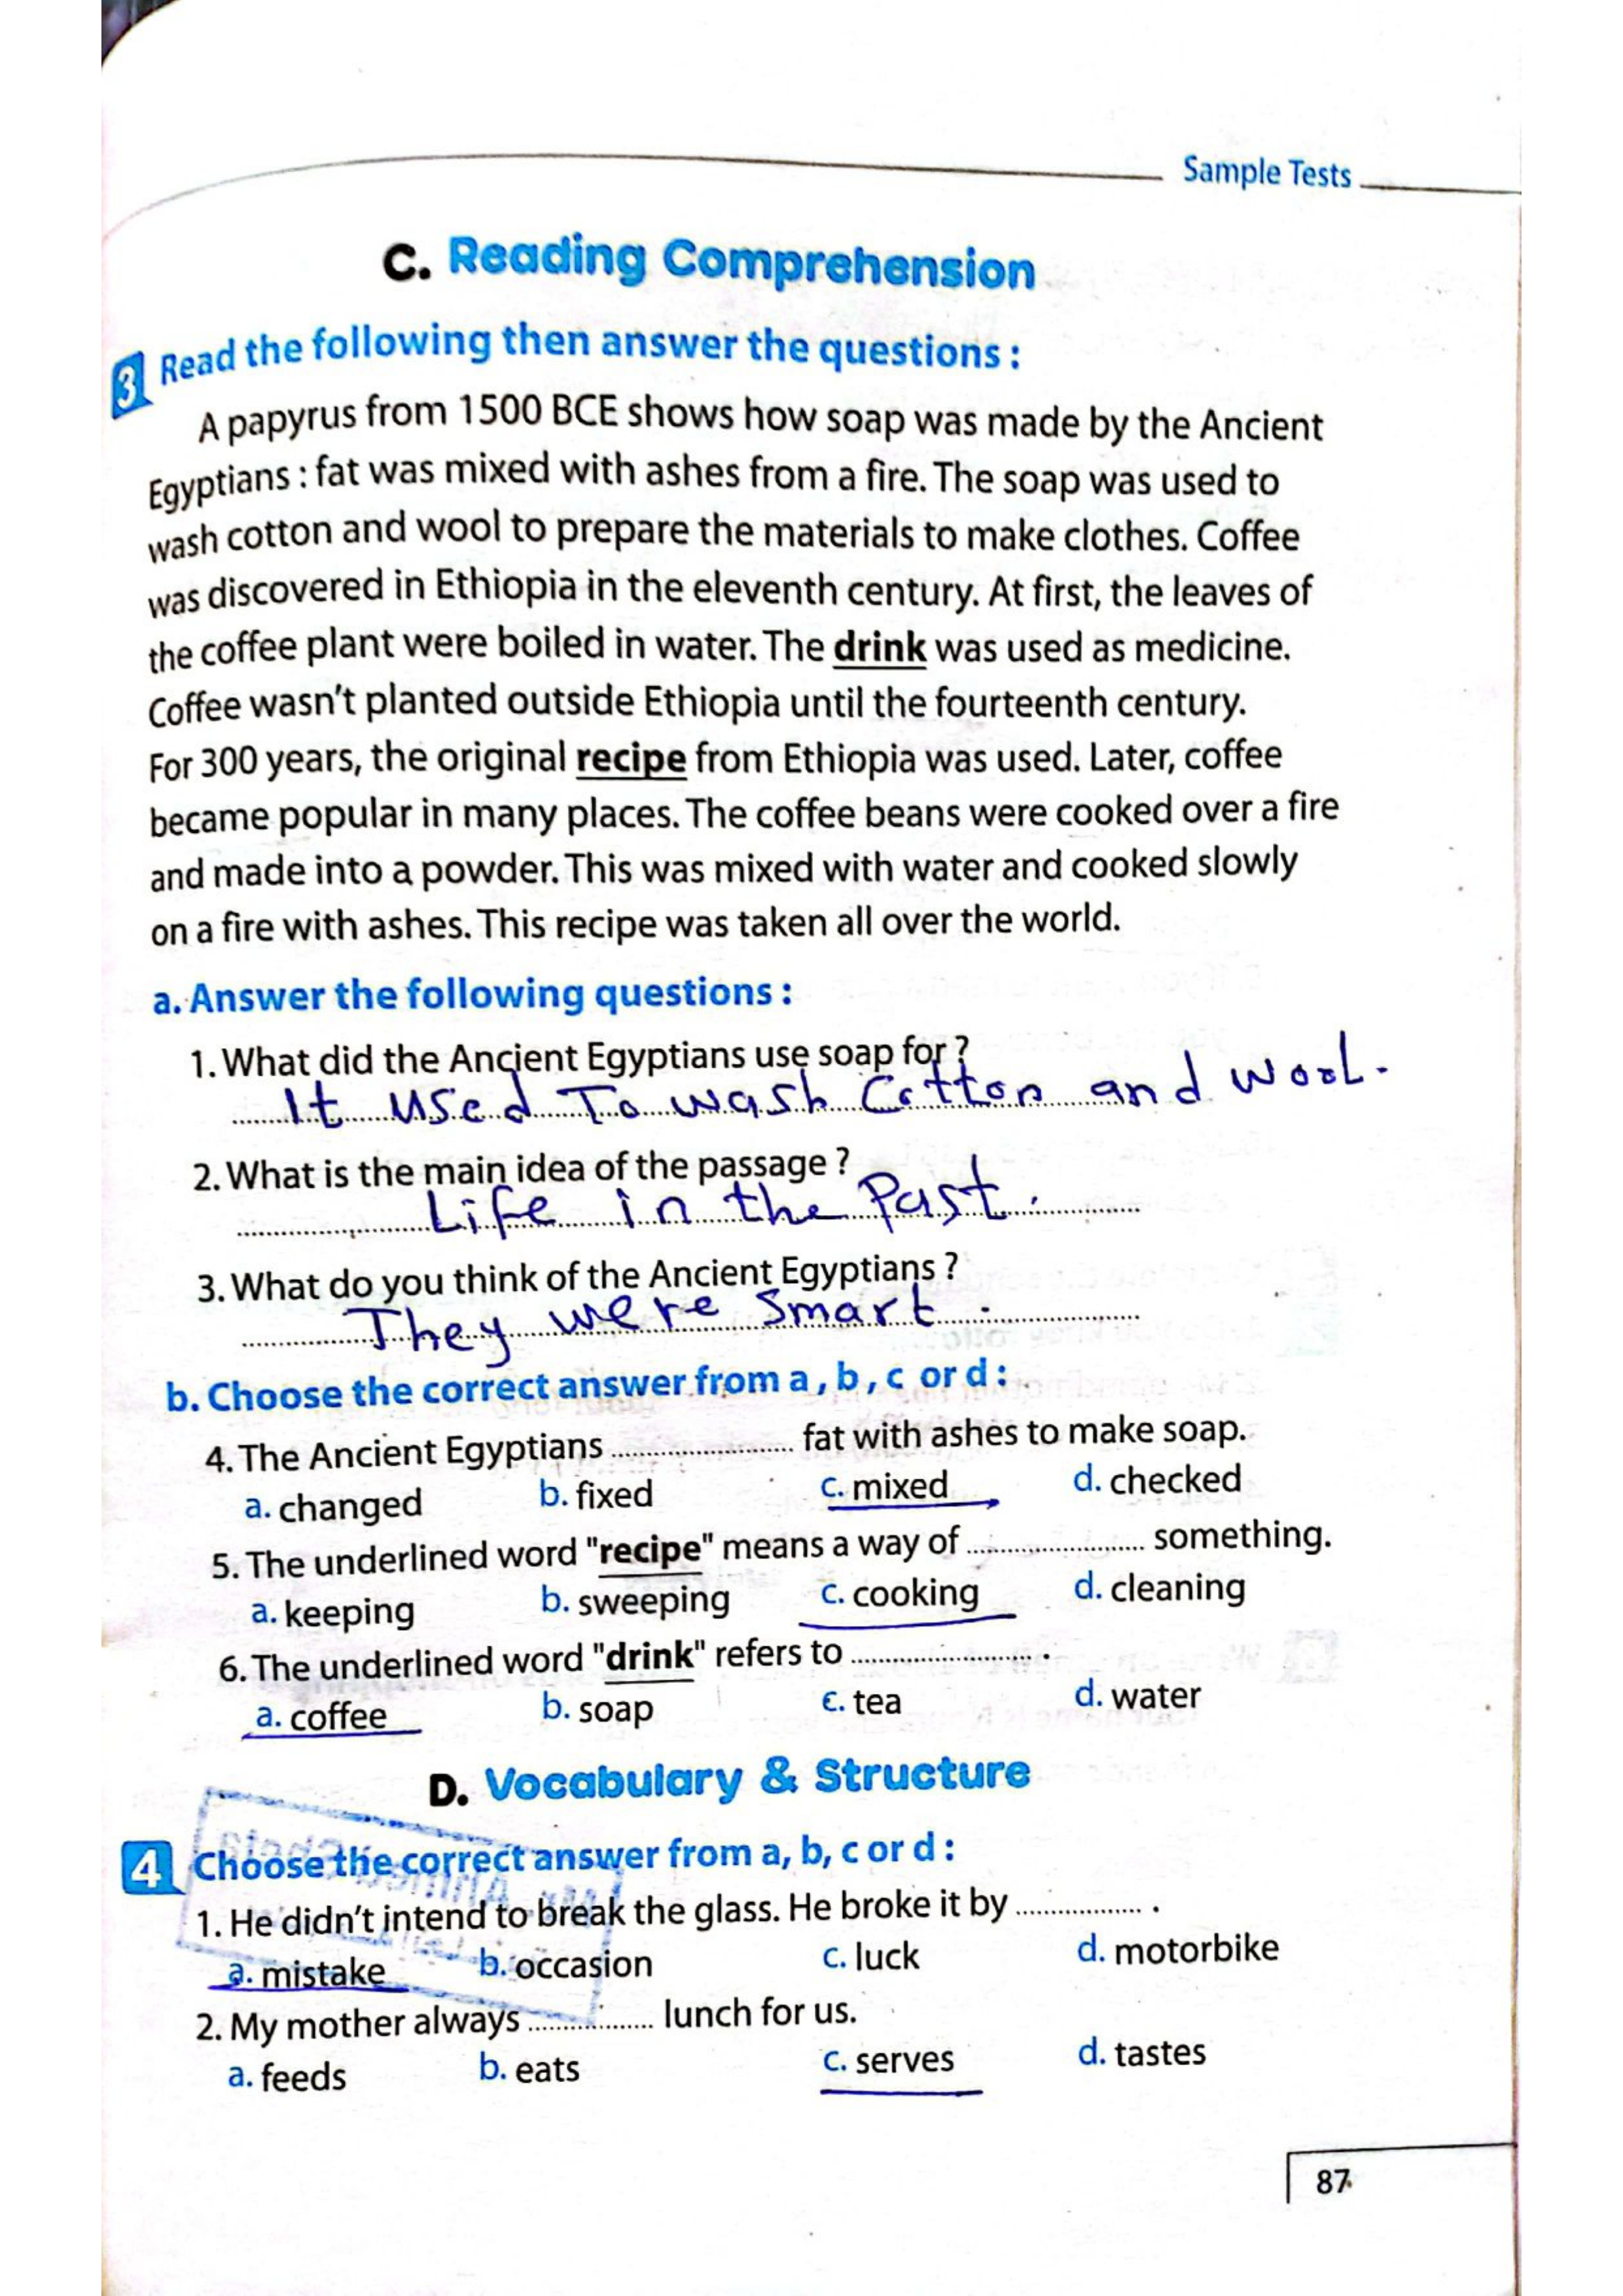 Sample Tests
C. Reading Comprehension
3 Read the following then answer the questions :
A papyrus from 1500 BCE shows how soap was made by the Ancient
Egyptians : fat was mixed with ashes from a fire. The soap was used to
wash cotton and wool to prepare the materials to make clothes. Coffee
was discovered in Ethiopia in the eleventh century. At first, the leaves of
the coffee plant were boiled in water. The drink was used as medicine.
Coffee wasn't planted outside Ethiopia until the fourteenth century.
For 300 years, the original recipe from Ethiopia was used. Later, coffee
became popular in many places. The coffee beans were cooked over a fire
and made into a powder. This was mixed with water and cooked slowly
on a fire with ashes. This recipe was taken all over the world.
a. Answer the following questions :
1. What did the Ancient Egyptians use soap for ?
It used To wash Cotton and wool.
2. What is the main idea of the passage ?
Life in the Past.
3. What do you think of the Ancient Egyptians ?
They were smart.
b. Choose the correct answer from a , b , c or d :
4. The Ancient Egyptians ........................ fat with ashes to make soap.
a. changed b. fixed c. mixed d. checked
5. The underlined word "recipe" means a way of ........................ something.
a. keeping b. sweeping c. cooking d. cleaning
6. The underlined word "drink" refers to ........................ .
a. coffee b. soap c. tea d. water
D. Vocabulary & Structure
4 Choose the correct answer from a, b, c or d :
1. He didn't intend to break the glass. He broke it by .................. .
a. mistake b. occasion c. luck d. motorbike
2. My mother always .................. lunch for us.
a. feeds b. eats c. serves d. tastes
87